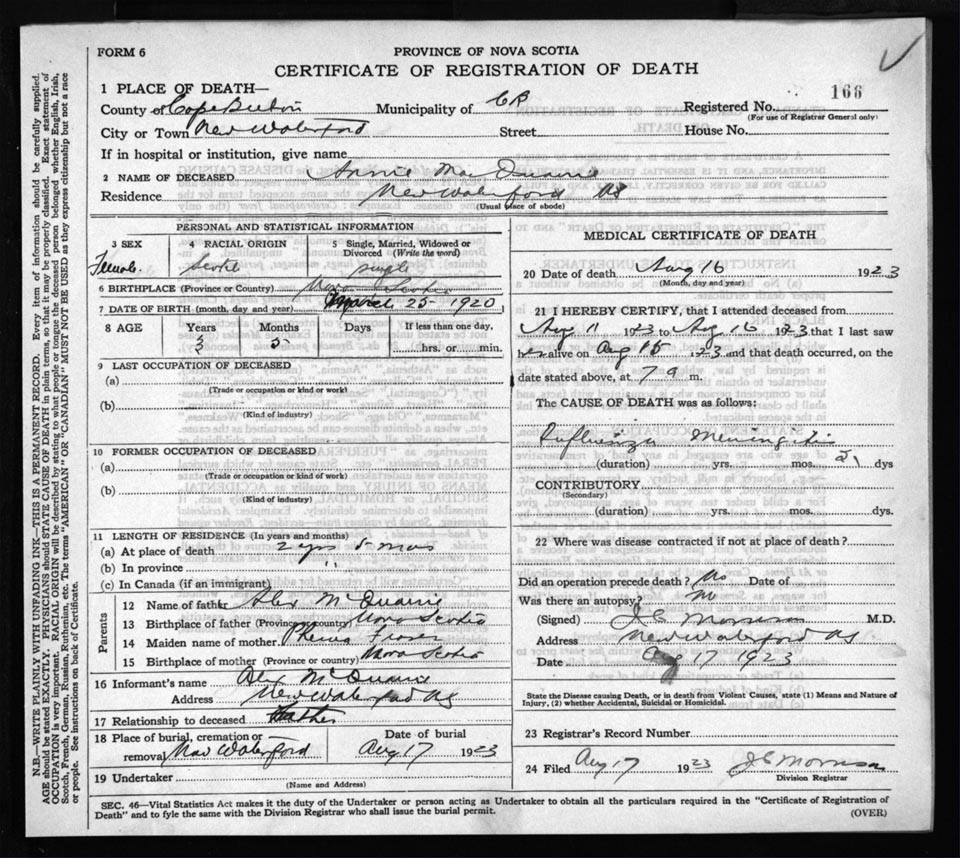 FORM 6
PROVINCE OF NOVA SCOTIA
CERTIFICATE OF REGISTRATION OF DEATH
166
1 PLACE OF DEATH—
County of Cape Breton Municipality of CB Registered No.
(For use of Registrar General only)
City or Town New Waterford Street House No.
If in hospital or institution, give name
2 NAME OF DECEASED Annie Mac
Residence New Waterford NS
(Usual place of abode)
PERSONAL AND STATISTICAL INFORMATION
3 SEX 4 RACIAL ORIGIN 5 Single, Married, Widowed or Divorced (Write the word)
Female Scotch single
6 BIRTHPLACE (Province or Country) Nova Scotia
7 DATE OF BIRTH (month, day and year) March 25 - 1920
8 AGE Years Months Days If less than one day,
3 5 hrs. or min.
9 LAST OCCUPATION OF DECEASED
(a)
(Trade or occupation or kind or work)
(b)
(Kind of industry)
10 FORMER OCCUPATION OF DECEASED
(a)
(Trade or occupation or kind or work)
(b)
(Kind of industry)
11 LENGTH OF RESIDENCE (In years and months)
(a) At place of death 2 yrs 5 mos
(b) In province "
(c) In Canada (if an immigrant)
Parents
12 Name of father Alex
13 Birthplace of father (Province or country) Nova Scotia
14 Maiden name of mother Fraser
15 Birthplace of mother (Province or country) Nova Scotia
16 Informant's name Alex
Address New Waterford NS
17 Relationship to deceased Father
18 Place of burial, cremation or removal New Waterford Date of burial Aug 17 1923
19 Undertaker
(Name and Address)
MEDICAL CERTIFICATE OF DEATH
20 Date of death Aug 16 1923
(Month, day and year)
21 I HEREBY CERTIFY, that I attended deceased from
Aug 11 1923 to Aug 16 1923 that I last saw
her alive on Aug 15 1923 and that death occurred, on the
date stated above, at 7 a m.
The CAUSE OF DEATH was as follows:
Influenza Meningitis
(duration) yrs. mos. dys
CONTRIBUTORY
(Secondary)
(duration) yrs. mos. dys.
22 Where was disease contracted if not at place of death?
Did an operation precede death? No Date of
Was there an autopsy? no
(Signed) J.C. Morrison M.D.
Address New Waterford NS
Date Aug 17 1923
State the Disease causing Death, or in death from Violent Causes, state (1) Means and Nature of Injury, (2) whether Accidental, Suicidal or Homicidal.
23 Registrar's Record Number
24 Filed Aug 17 1923 J C Morrison
Division Registrar
SEC. 46—Vital Statistics Act makes it the duty of the Undertaker or person acting as Undertaker to obtain all the particulars required in the "Certificate of Registration of
Death" and to fyle the same with the Division Registrar who shall issue the burial permit. (OVER)
N.B.—WRITE PLAINLY WITH UNFADING INK—THIS IS A PERMANENT RECORD. Every item of information should be carefully supplied.
AGE should be stated EXACTLY. PHYSICIANS should STATE CAUSE OF DEATH in plain terms, so that it may be properly classified. Exact statement of
OCCUPATION is very important. RACIAL ORIGIN will be described by stating to what people or tongue the deceased person belonged whether English, Irish,
Scotch, French, German, Russian, Ruthenian, etc. The terms "AMERICAN" OR "CANADIAN" MUST NOT BE USED as they express citizenship but not a race
or people. See instructions on back of Certificate.